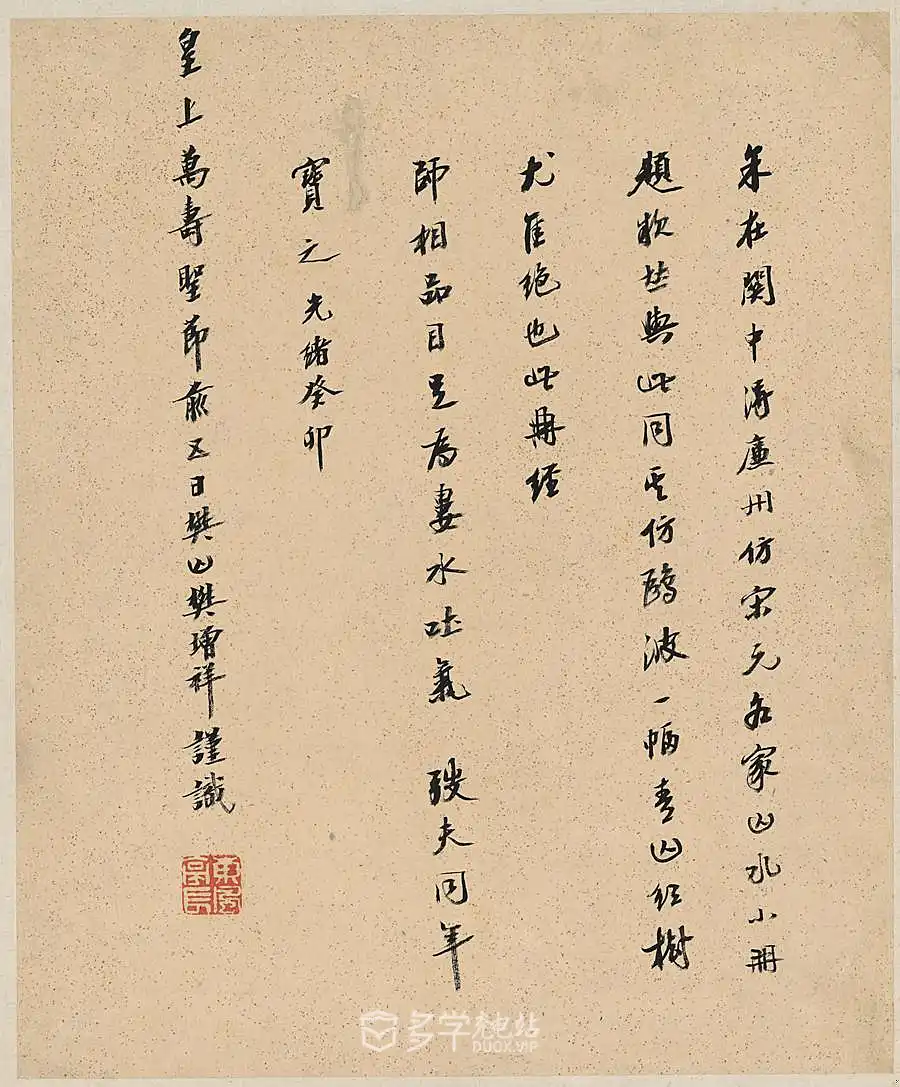 余在關中得廉州仿宋元名家山水小冊
題款皆與此同其仿鷗波一幅青山紅樹
尤佳絕也此冊經
師相品目足為婁水吐氣 弢夫同年
寶之光緒癸卯
皇上萬壽聖節前五日樊山樊增祥謹識
DUOX.VIP